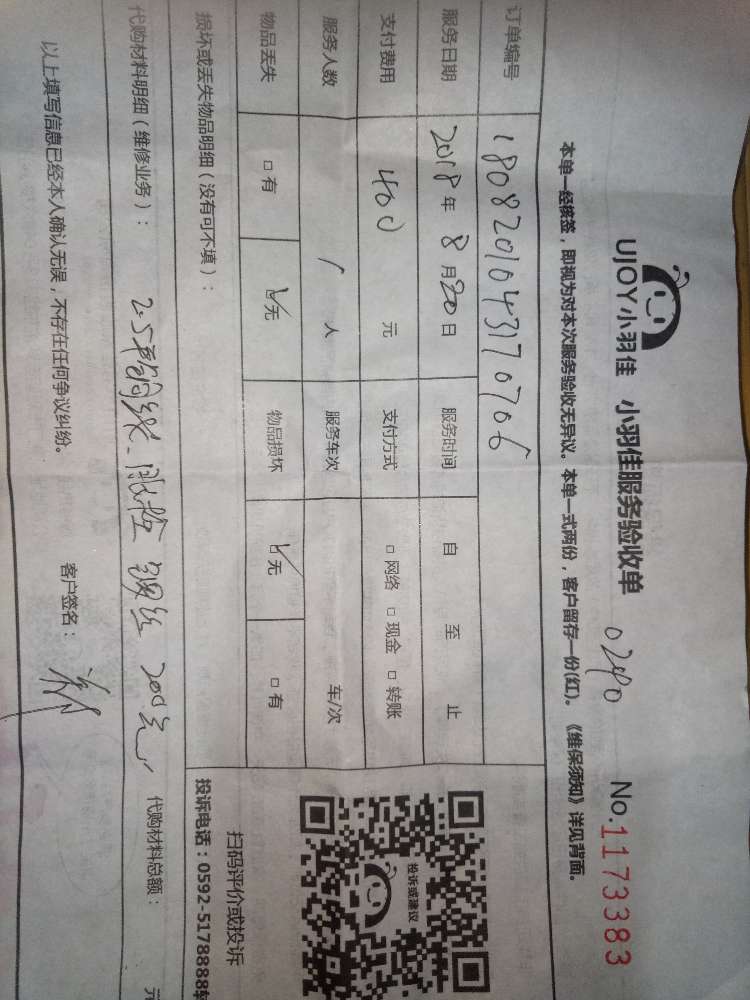 UJOY小羽佳 小羽佳服务验收单 0240 No.1173383
本单一经核签，即视为对本次服务验收无异议。本单一式两份，客户留存一份(红)。《维保须知》详见背面。
订单编号 1808201043170706
服务日期 2018年8月20日 服务时间 自 至 止
支付费用 400元 支付方式 □网络 □现金 □转账
服务人数 1人 服务车次 车/次
物品丢失 □有 ☑无 物品损坏 ☑无 □有
损坏或丢失物品明细（没有可不填）：
投诉或建议
扫码评价或投诉
投诉电话：0592-5178888转
代购材料明细（维修业务）： 2.5 200元 代购材料总额： 元
以上填写信息已经本人确认无误，不存在任何争议纠纷。 客户签名：